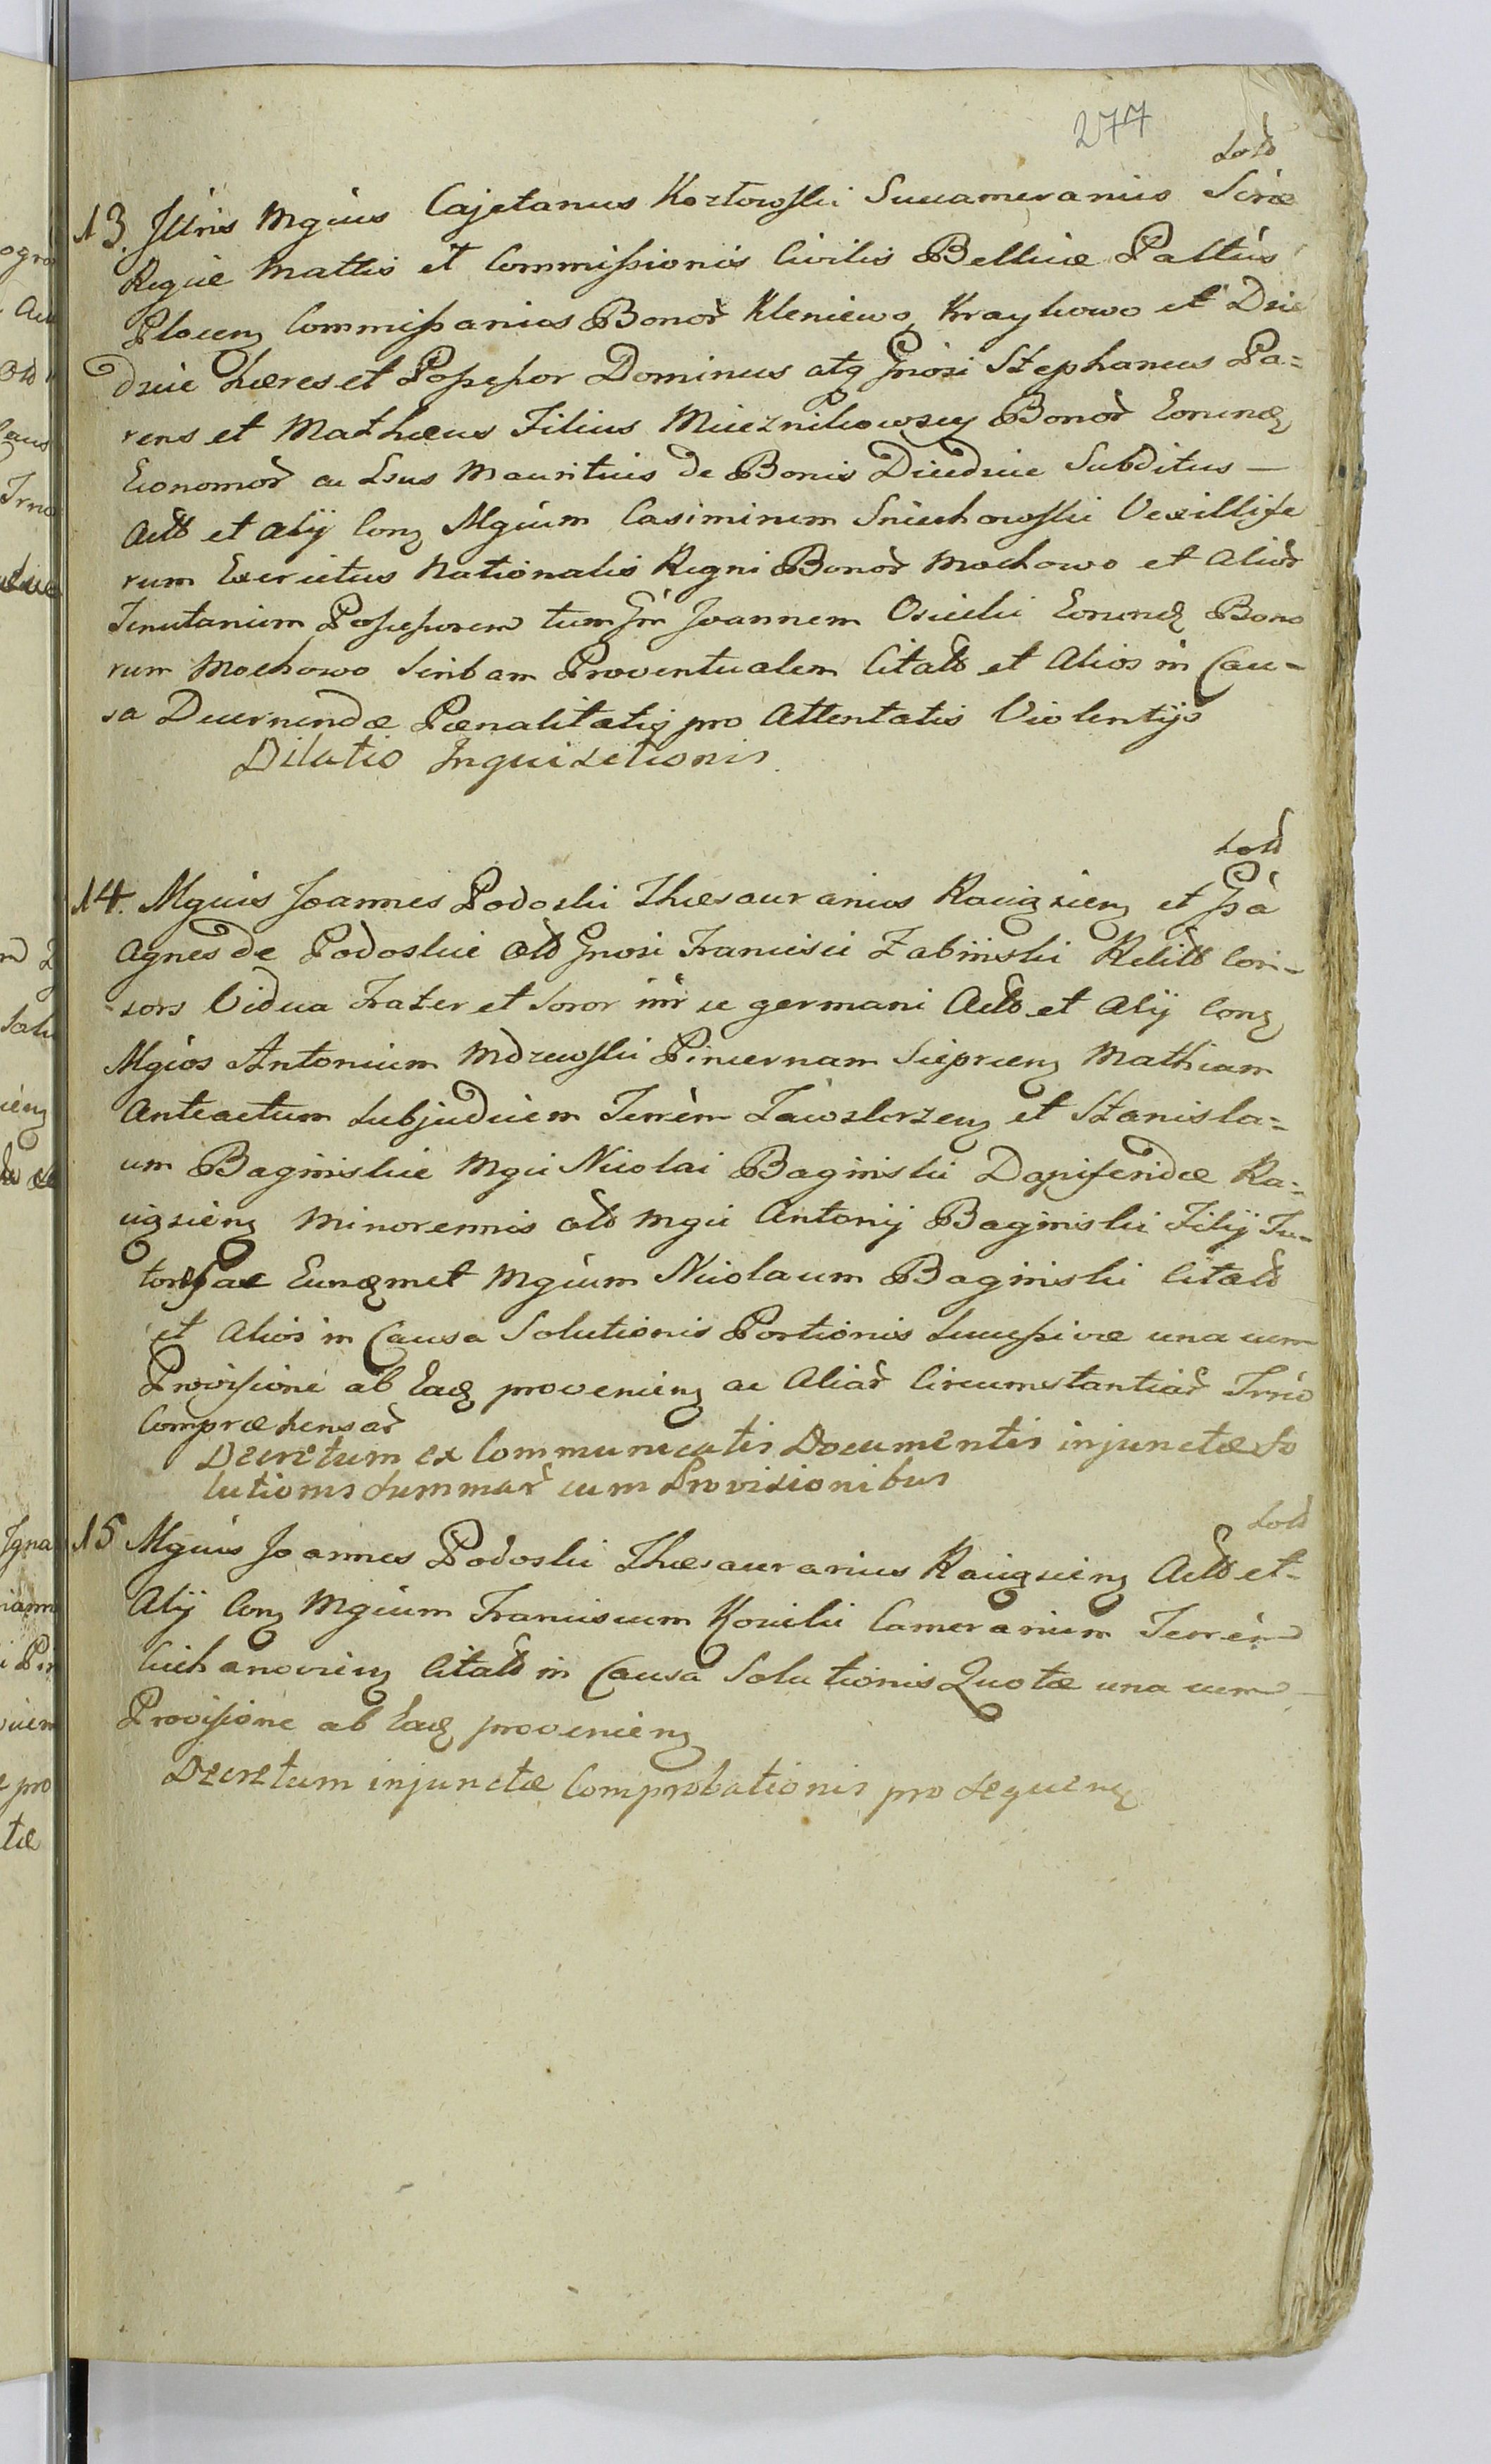 277
Sold
13. Jllris Mgius Cajetanus Kozłowski Succamerarius Scræ
Regiæ Mattis et Commissionis Civilis Bellicæ Pallus
Plocen Commissarius Bonor Kleniewo, Kraykowo et Dzie
dzice hæres et Possessor Dominus atq Gnosi Stephanus Pa=
rens et Mathæus Filius Mieznikowscy Bonor Eorund
Economor ac Lsus Mauritius de Bonis Diedzice Subditus –
Actt et alij Con Mgium Casimirum Sniechowski Vexillife
rum Exercitus Nationalis Regni Bonor Mochowo et Alior
Tenutarium Possessorem tum Gn Joannem Osiecki Eorund Bono
rum Mochowo Scribam Proventualem Citatt et Alios in Cau=
sa Decernendæ Pœnalitatis pro Attentatis Violentijs
Dilatio Inquisitionis
Sold
14. Mgius Joannes Podoski Thesaurarius Raciązien et Gsa
Agnes de Podoskie olt Gnosi Francisci Zabinski Relictt Con-
sors Vidua Frater et Soror inr se germani Actt et Alij Con
Mgios Antonium Mdzewski Pincernam Sieprcen Mathiam
Anteactum Subjudicem Terren Zawskrzen et Stanisla=
um Baginskie Mgii Nicolai Baginski Dapiferidæ Ra=
ciązien Minorennis olt Mgii Antonij Baginski Filij Tu=
tores ac Eundmet Mgium Nicolaum Baginski Citatt
et Alios in Causa Solutionis Portionis Successivæ una cum
Provisione ab Ead provenien ac Aliar Circumstantiar Trrio
Compræhensar
Decretum ex Communicatis Documentis injunctæ So
lutionis Summar cum Provisionibus
Sold
15 Mgius Joannes Podoski Thesaurarius Raciązien Actt et
Alij Con Mgium Franciscum Kozicki Camerarium Terren
Ciechanovien Citatt in Causa Solutionis Quotæ una cum
Provisione ab Ead provenien
Decretum injunctæ Comprobationis pro sequen